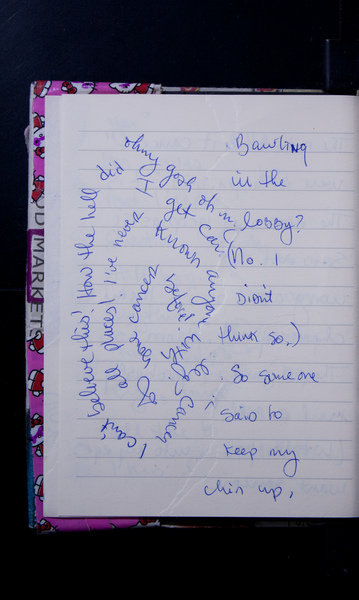 Bawling
in the
lobby?
(No. I
Didn't
think so.)
So someone
said to
keep my
chin up,
I can't believe this! How the hell did
oh my gosh oh
get
all places! I've never
known anyone
cancer before.
cancer
D MARKETS